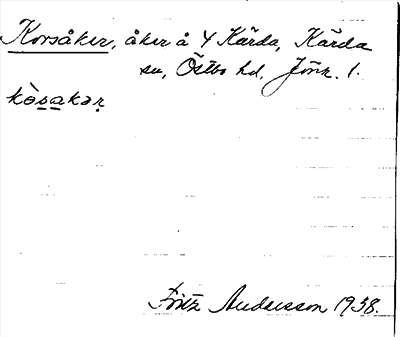 Korsåker, åker å 4 Kärda, Kärda
sn, Östbo hd, Jönk. l.
kòsakər
Fritz Andersson 1938.